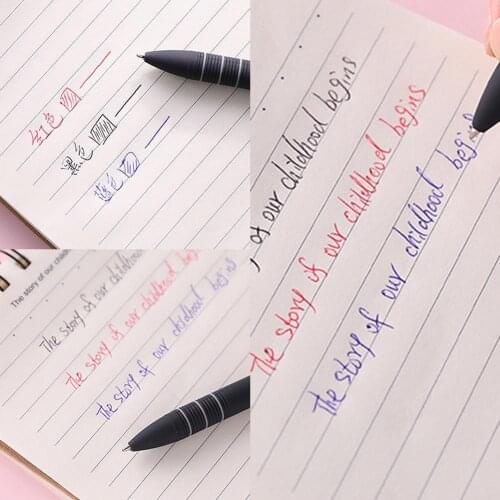 红色
黑色
蓝色
The story of our childh
The story of our childhood
The story of our childhood begins
The story of our childhood begins
, of our childhood begins
The story of our childhood begins
The story of our childhood begins